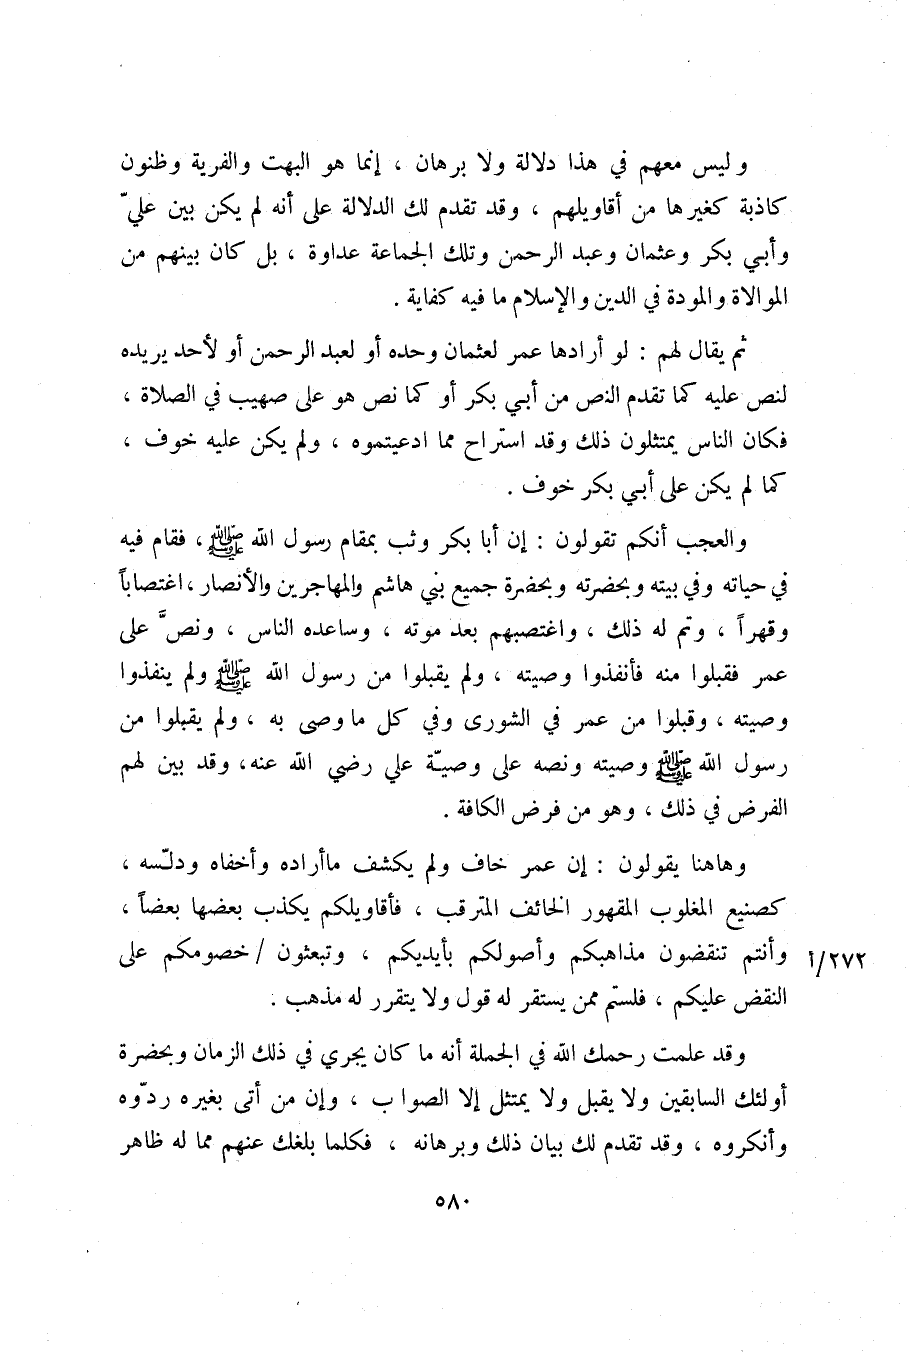 وليس معهم في هذا دلالة ولا برهان ، إنما هو البهت والفرية وظنون
كاذبة كغيرها من أقاويلهم ، وقد تقدم لك الدلالة على أنه لم يكن بين عليّ
وأبي بكر وعثمان وعبد الرحمن وتلك الجماعة عداوة ، بل كان بينهم من
الموالاة والمودة في الدين والإسلام ما فيه كفاية .
ثم يقال لهم : لو أرادها عمر لعثمان وحده أو لعبد الرحمن أو لأحد يريده
لنص عليه كما تقدم النص من أبي بكر أو كما نص هو على صهيب في الصلاة ،
فكان الناس يمتثلون ذلك وقد استراح مما ادعيتموه ، ولم يكن عليه خوف ،
كما لم يكن على أبي بكر خوف .
والعجب أنكم تقولون : إن أبا بكر وثب بمقام رسول الله ﷺ، فقام فيه
في حياته وفي بيته وبحضرته وبحضرة جميع بني هاشم والمهاجرين والأنصار ، اغتصاباً
وقهراً ، وتم له ذلك ، واغتصبهم بعد موته ، وساعده الناس ، ونصَّ على
عمر فقبلوا منه فأنفذوا وصيته ، ولم يقبلوا من رسول الله ﷺ ولم ينفذوا
وصيته ، وقبلوا من عمر في الشورى وفي كل ما وصى به ، ولم يقبلوا من
رسول الله ﷺ وصيته ونصه على وصيّة علي رضي الله عنه، وقد بين لهم
الفرض في ذلك ، وهو من فرض الكافة .
وهاهنا يقولون : إن عمر خاف ولم يكشف ماأراده وأخفاه ودلّسه ،
كصنيع المغلوب المقهور الخائف المترقب ، فأقاويلكم يكذب بعضها بعضاً ،
وأنتم تنقضون مذاهبكم وأصولكم بأيديكم ، وتبعثون / خصومكم على ٢٧٢/أ
النقض عليكم ، فلستم ممن يستقر له قول ولا يتقرر له مذهب .
وقد علمت رحمك الله في الجملة أنه ما كان يجري في ذلك الزمان وبحضرة
أولئك السابقين ولا يقبل ولا يمتثل إلا الصواب ، وإن من أتى بغيره ردّوه
وأنكروه ، وقد تقدم لك بيان ذلك وبرهانه ، فكلما بلغك عنهم مما له ظاهر
٥٨٠